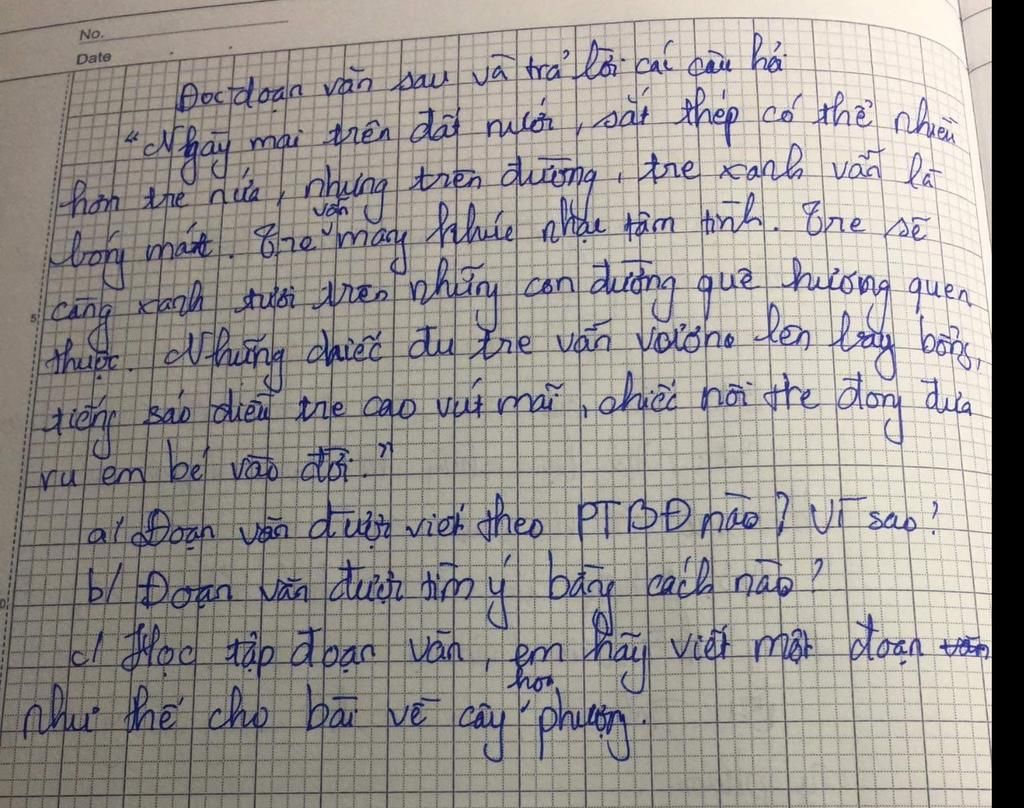 No.
Date
Đọc đoạn văn sau và trả lời các câu hỏi
"Ngày mai trên đất nước, sắt thép có thể nhiều
hơn tre nứa, nhưng trên đường, tre xanh vẫn là
bóng mát. Tre vẫn mang khúc nhạc tâm tình. Tre sẽ
càng xanh tươi trên những con đường quê hương quen
thuộc. Những chiếc đu tre vẫn vươn lên bay bổng,
tiếng sáo diều tre cao vút mãi, chiếc nôi tre đong đưa
ru em bé vào đời."
a/ Đoạn văn được viết theo PTBĐ nào? Vì sao?
b/ Đoạn văn được tìm ý bằng cách nào?
c/ Học tập đoạn văn, em hãy viết một đoạn văn
như thế cho bài về cây hoa phượng.